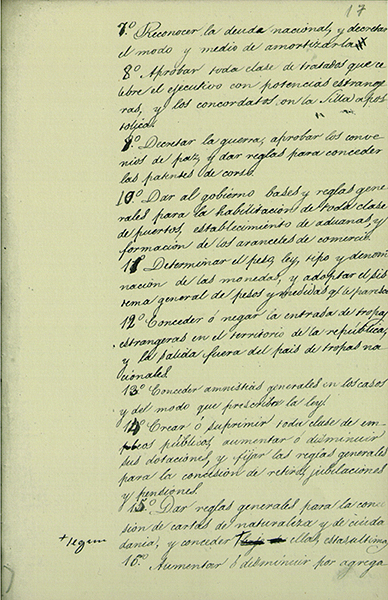 17
7.º Reconocer la deuda nacional, y decretar
el modo y medio de amortizarla
8.º Aprobar toda clase de tratados que ce
lebre el ejecutivo con potencias estrange
ras, y los concordatos con la Silla apos
tolica.
9.º Decretar la guerra, aprobar los conve
nios de paz, y dar reglas para conceder
las patentes de corso.
10.º Dar al gobierno bases y reglas gene
rales para la habilitacion de toda clase
de puertos, establecimiento de aduanas, y
formacion de los aranceles de comercio.
11.º Determinar el peso, ley, tipo y denomi
nacion de las monedas, y adoptar el sis
tema general de pesos y medidas q.e le paresca
12.º Conceder ó negar la entrada de tropas
estrangeras en el territorio de la republica,
y la salida fuera del pais de tropas na
cionales.
13.º Conceder amnistias generales en los casos
y del modo que prescriba la ley.
14.º Crear ó suprimir toda clase de em
pleos públicos, aumentar ó disminuir
sus dotaciones, y fijar las reglas generales
para la concesion de retiros, jubilaciones
y pensiones.
15.º Dar reglas generales para la conce
sion de cartas de naturaleza y de ciuda
+ segun
dania, y conceder ellas, estas ultimas
16.º Aumentar ó disminuir por agrega